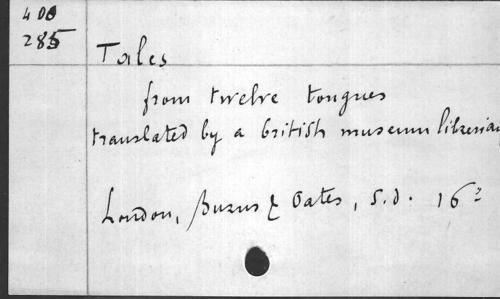 400
285
Tales
from twelve tongues
translated by a british museum librarian
London, Burns & Oates, s.d. 16º